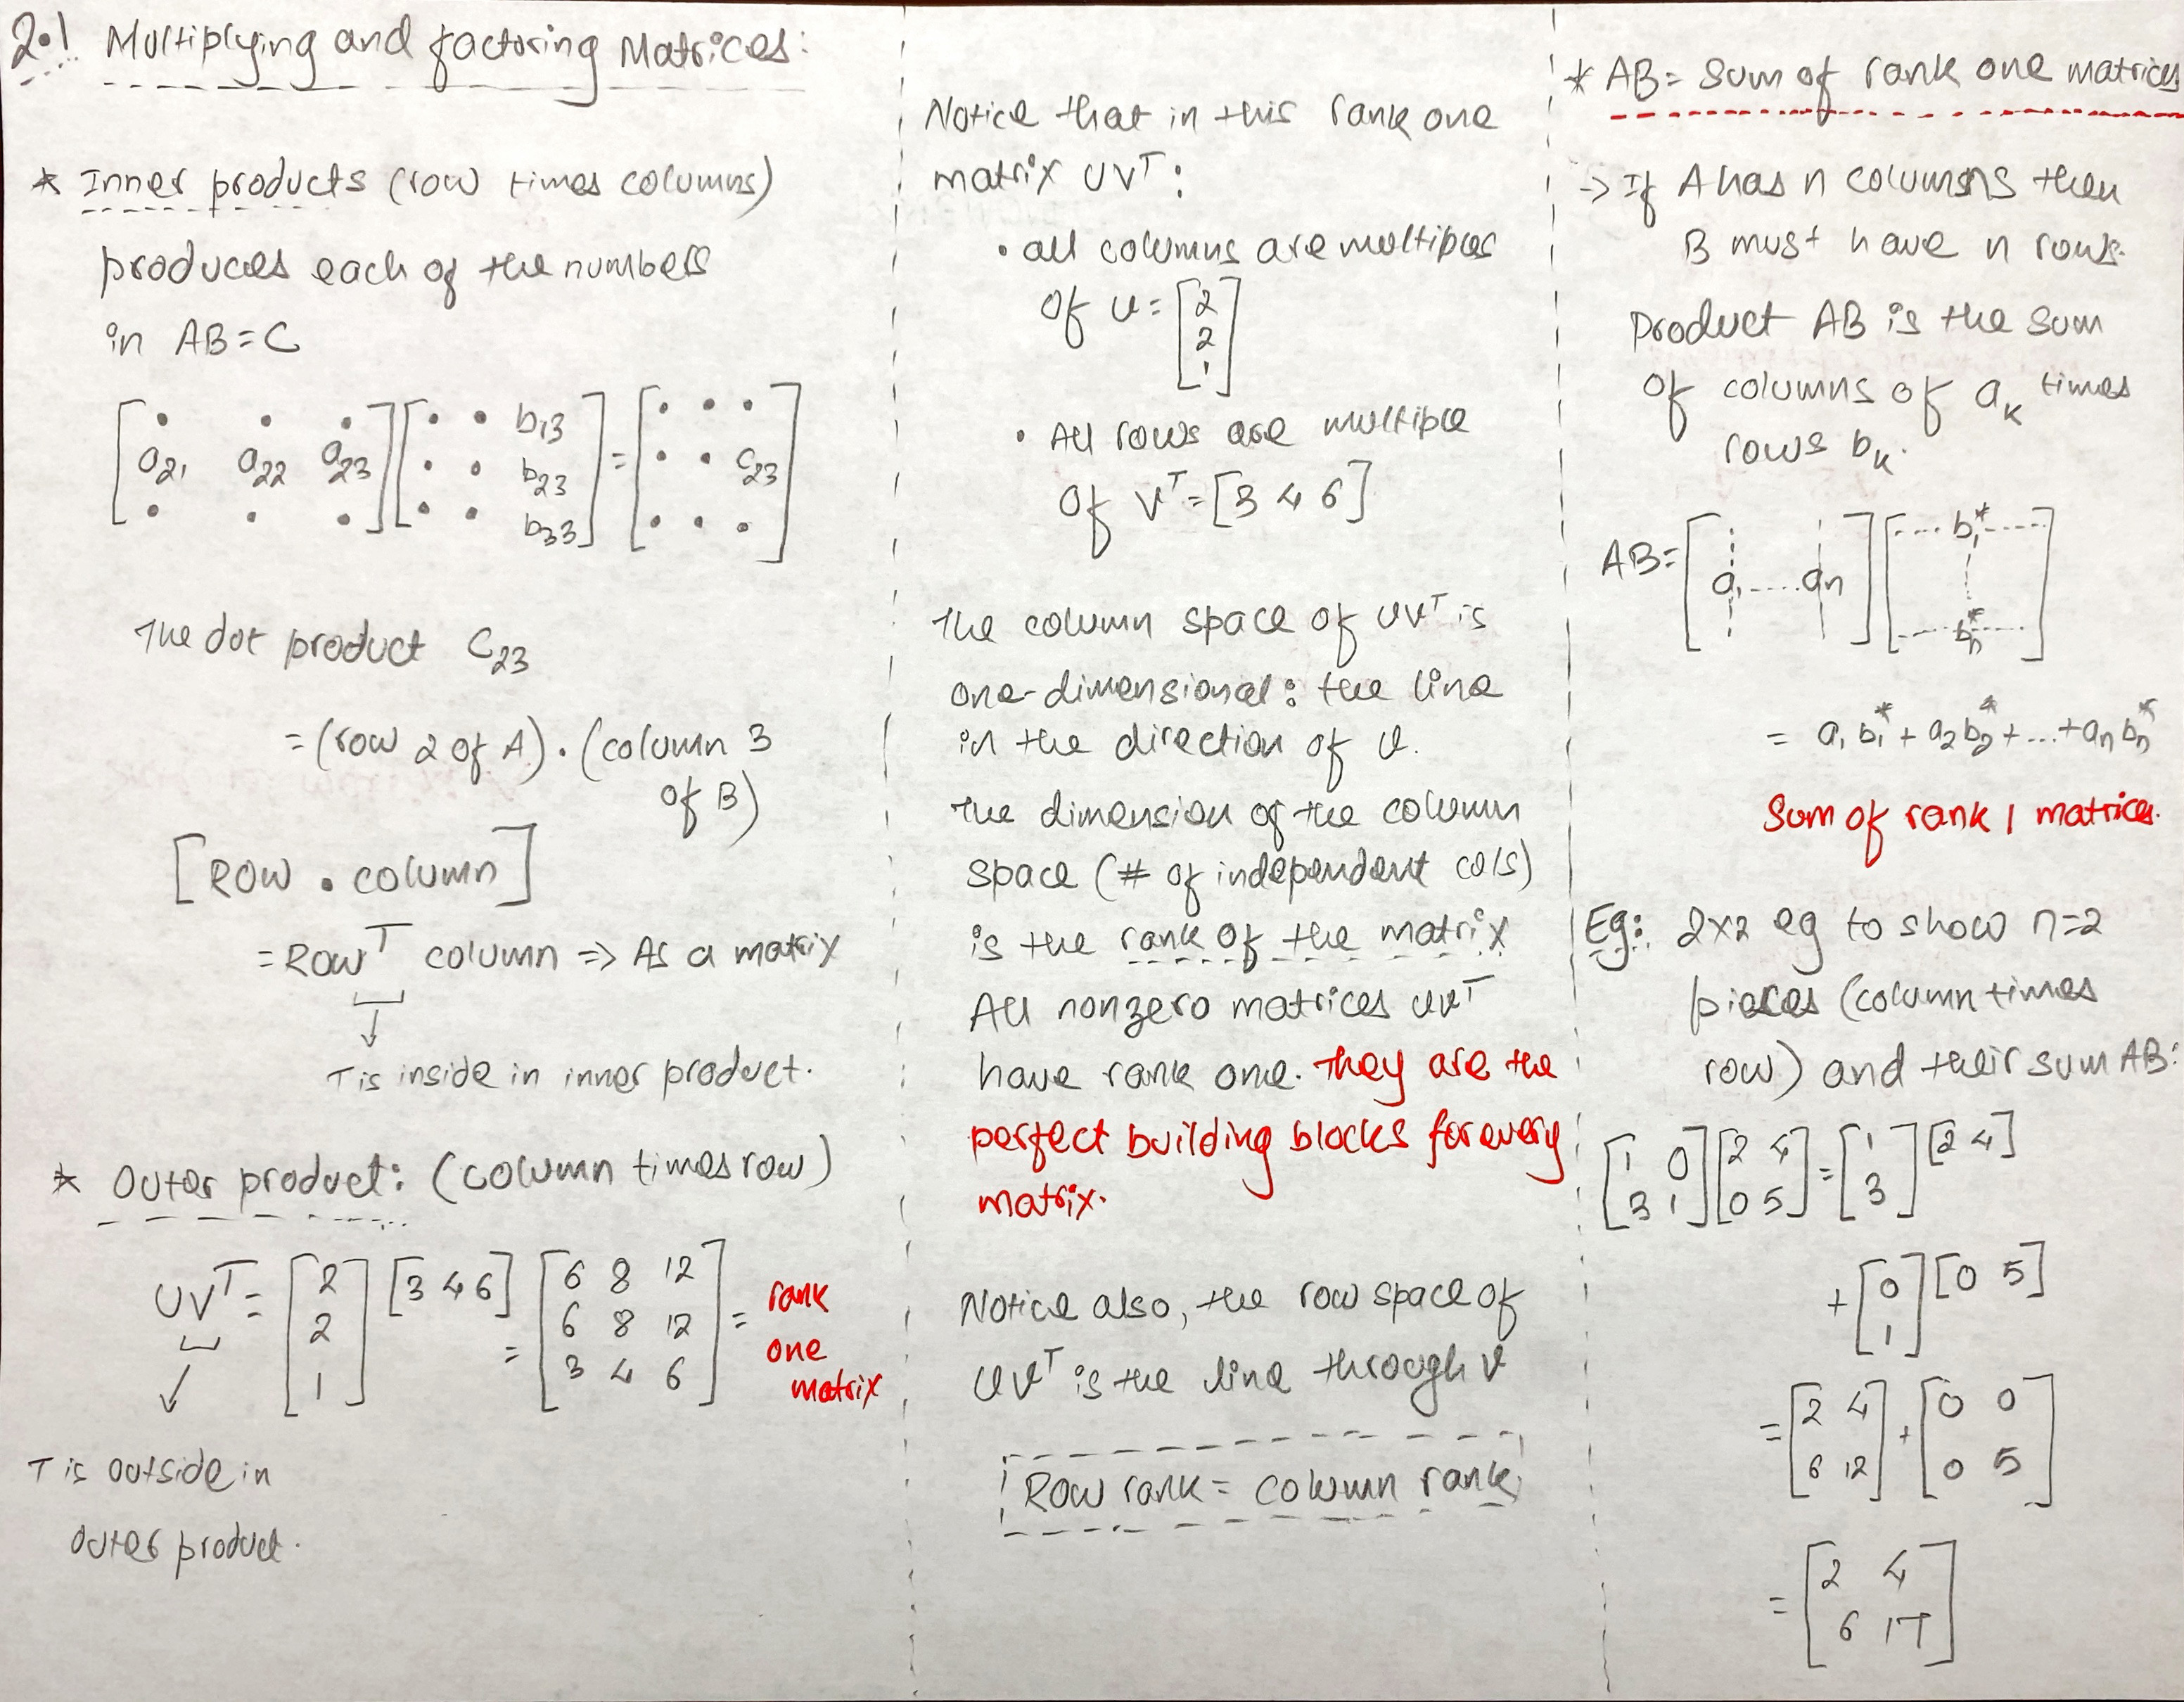 2.1 Multiplying and factoring Matrices:
* Inner products (row times columns)
produces each of the numbers
in AB=C
[ . . . ] [ . . b13 ] = [ . . . ]
[ a21 a22 a23 ] [ . . b23 ] = [ . . c23 ]
[ . . . ] [ . . b33 ] = [ . . . ]
The dot product C23
= (row 2 of A) . (column 3
of B)
[Row . column]
= Row^T column => As a matrix
T is inside in inner product.
* Outer product: (column times row)
UV^T = [2 2 1] [3 4 6] = [6 8 12; 6 8 12; 3 4 6] = rank
one
matrix
T is outside in
outer product.
Notice that in this rank one
matrix UV^T:
• all columns are multiples
of u = [2 2 1]
• All rows are multiple
of V^T = [3 4 6]
The column space of UV^T is
one-dimensional: the line
in the direction of U.
The dimension of the column
space (# of independent cols)
is the rank of the matrix
All nonzero matrices UV^T
have rank one. They are the
perfect building blocks for every
matrix.
Notice also, the row space of
UV^T is the line through V
Row rank = column rank
* AB = Sum of rank one matrices
-> If A has n columns then
B must have n rows.
Product AB is the sum
of columns of ak times
rows bk.
AB = [a1 .... an] [... b1* ... ; ... bn* ...]
= a1 b1* + a2 b2* + ... + an bn*
Sum of rank 1 matrices.
Eg: 2x2 eg to show n=2
pieces (column times
row) and their sum AB:
[1 0; 3 1] [2 4; 0 5] = [1; 3] [2 4]
+ [0; 1] [0 5]
= [2 4; 6 12] + [0 0; 0 5]
= [2 4; 6 17]